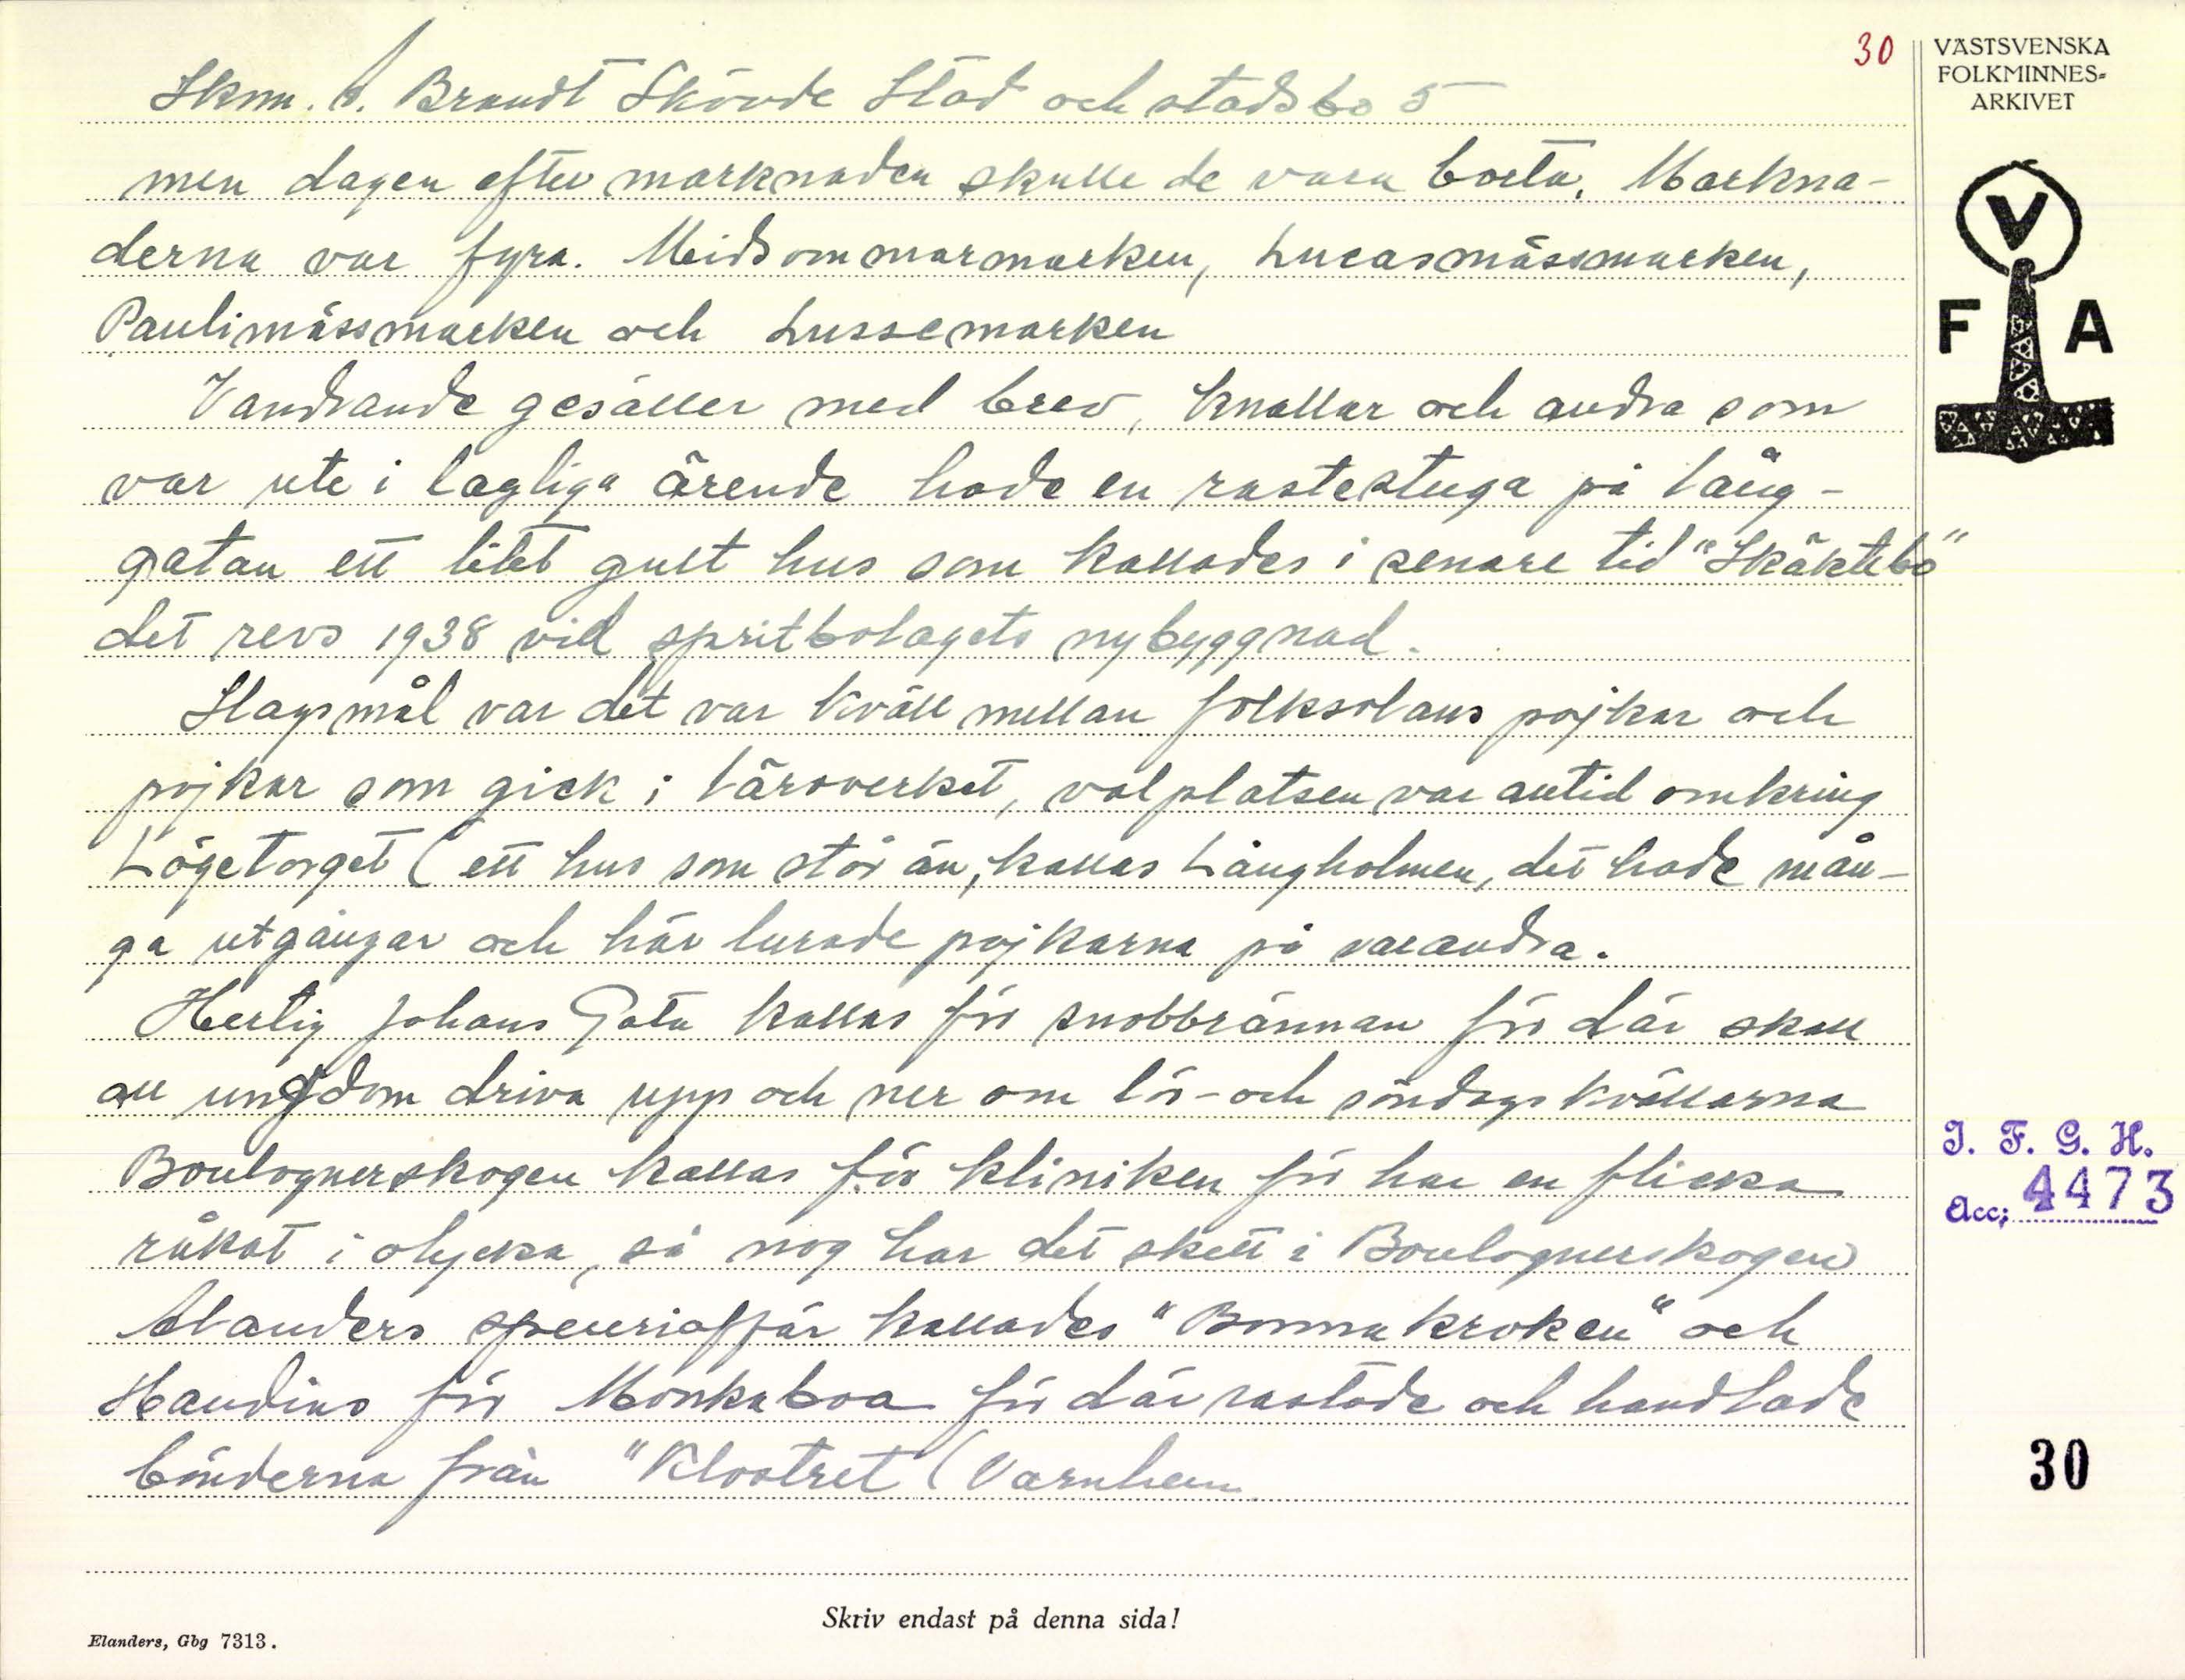 30
VÄSTSVENSKA
FOLKMINNES-
ARKIVET
Sknm. A. Brandt Skövde Stad och stadsbo 5
men dagen efter marknaden skulle de vara borta. Markna-
derna var fyra. Meidsommarmarken, Lucasmässmarken,
Paulimässmarken och Lussemarken
Vandrande gesäller med brev, knallar och andra som
var ute i lagliga ärende hade en rastestuga på lång-
gatan ett litet gult hus som kallades i senare tid "Skäktebo"
det revs 1938 vid spritbolagets nybyggnad.
Slagsmål var det var kväll mellan folksolans pojkar och
pojkar som gick i läroverket, valplatsen var altid omkring
Lögetorget (ett hus som står än, kallas Långholmen, det hade mån-
ga utgångar och här lurade pojkarna på varandra.
Hertig Johans Gata kallas för snobbrännan för där skall
all ungdom driva upp och ner om lör- och söndagskvällarna
Boulognerskogen kallas för kliniken för har en flicka
råkat i olycka, så nog har det skett i Boulognerskogen
Alanders speceriaffär kallades "Bonnakroken" och
Handins för Monkaboa för där rastade och handlade
bönderna från "Klostret (Varnhem
V
F A
I. F. G. H.
Acc; 4473
30
Skriv endast på denna sida!
Elanders, Gbg 7313.